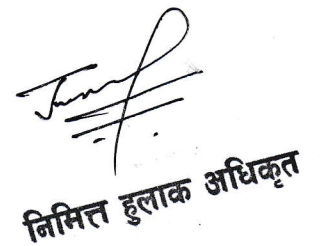 निमित्त हुलाक अधिकृत